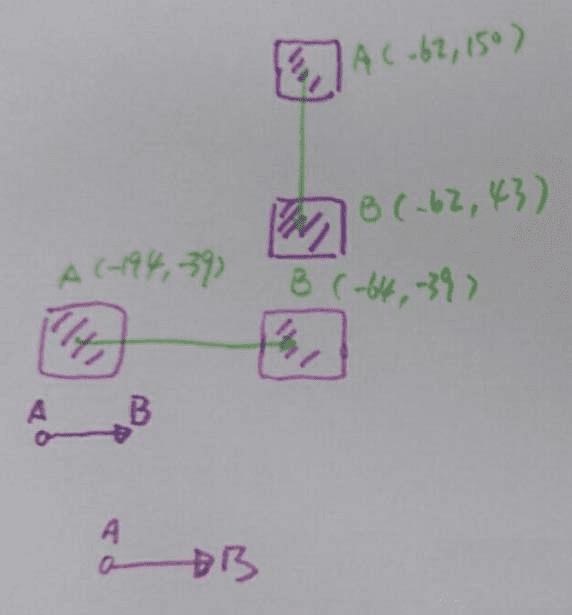 A (-62, 150)
B (-62, 43)
A (-194, -39)
B (-64, -39)
A B
A B